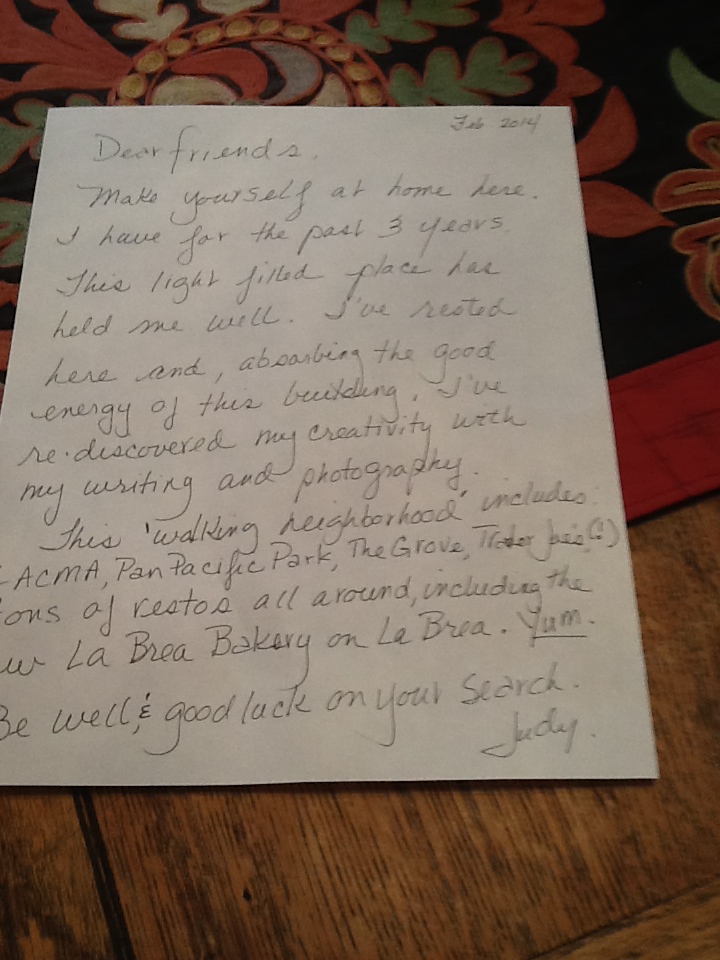 Feb 2014
Dear friends.
Make yourself at home here.
I have for the past 3 years.
This light filled place has
held me well. I've rested
here and, absorbing the good
energy of this building, I've
re-discovered my creativity with
my writing and photography.
This 'walking neighborhood' includes:
LACMA, Pan Pacific Park, The Grove, Trader Joe's (!)
ons of restos all around, including the
ew La Brea Bakery on La Brea. Yum.
Be well & good luck on your search.
Judy.